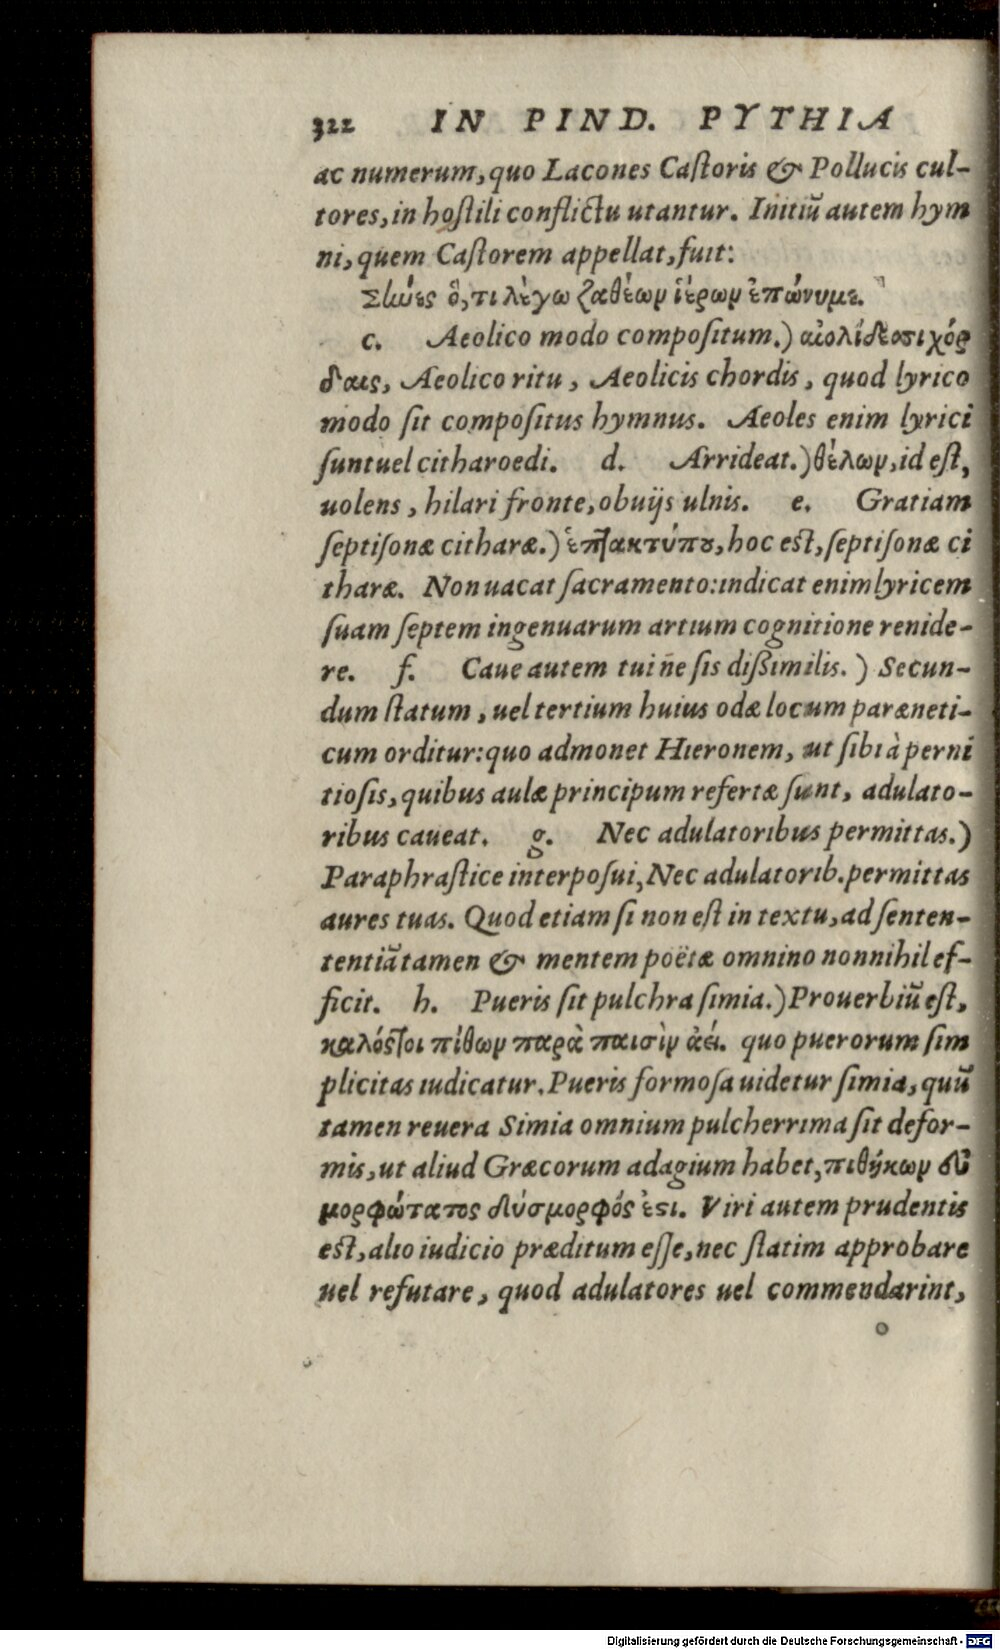 322 IN PIND. PYTHIA
ac numerum, quo Lacones Castoris & Pollucis cul-
tores, in hostili conflictu utantur. Initiũ autem hym
ni, quem Castorem appellat, fuit:
Σιωές ὅ, τι λέγω ζαθέων ἱέρων ἐπώνυμε.
c. Aeolico modo compositum.) αἰολίδεσσι χόρ
δαις, Aeolico ritu, Aeolicis chordis, quod lyrico
modo sit compositus hymnus. Aeoles enim lyrici
sunt uel citharoedi. d. Arrideat.) θέλων, id est,
uolens, hilari fronte, obuijs ulnis. e. Gratiam
septisonæ citharæ.) ἑπτακτύπου, hoc est, septisonæ ci
tharæ. Non uacat sacramento: indicat enim lyricem
suam septem ingenuarum artium cognitione renide-
re. f. Caue autem tui ñe sis dißimilis.) Secun-
dum statum, uel tertium huius odæ locum paræneti-
cum orditur: quo admonet Hieronem, ut sibi à perni
tiosis, quibus aulæ principum refertæ sunt, adulato-
ribus caueat. g. Nec adulatoribus permittas.)
Paraphrastice interposui, Nec adulatorib. permittas
aures tuas. Quod etiam si non est in textu, ad senten-
tentiã tamen & mentem poëtæ omnino nonnihil ef-
ficit. h. Pueris sit pulchra simia.) Prouerbiũ est,
καλός τοι πίθων παρὰ παισὶν ἀεί. quo puerorum sim
plicitas iudicatur. Pueris formosa uidetur simia, quũ
tamen reuera Simia omnium pulcherrima sit defor-
mis, ut aliud Græcorum adagium habet, πιθήκων εὐ
μορφώτατος δύσμορφός ἐστι. Viri autem prudentis
est, alio iudicio præditum esse, nec statim approbare
uel refutare, quod adulatores uel commendarint,
o
Digitalisierung gefördert durch die Deutsche Forschungsgemeinschaft - DFG